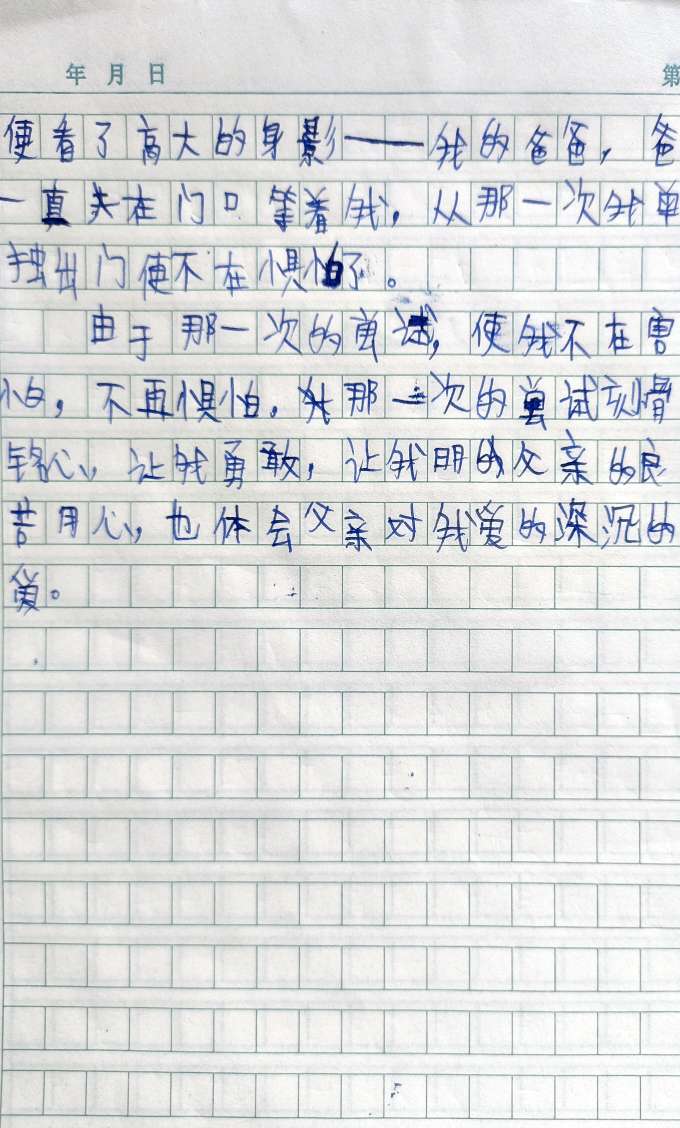 年 月 日 第
便看了高大的身影——我的爸爸，爸
一直夫在门口等着我，从那一次我单
独出门便不在惧怕了。
由于那一次的尝试，使我不在害
怕，不再惧怕，那一次的尝试刻骨
铭心，让我勇敢，让我明的父亲的良
苦用心，也体会父亲对我爱的深沉的
爱。